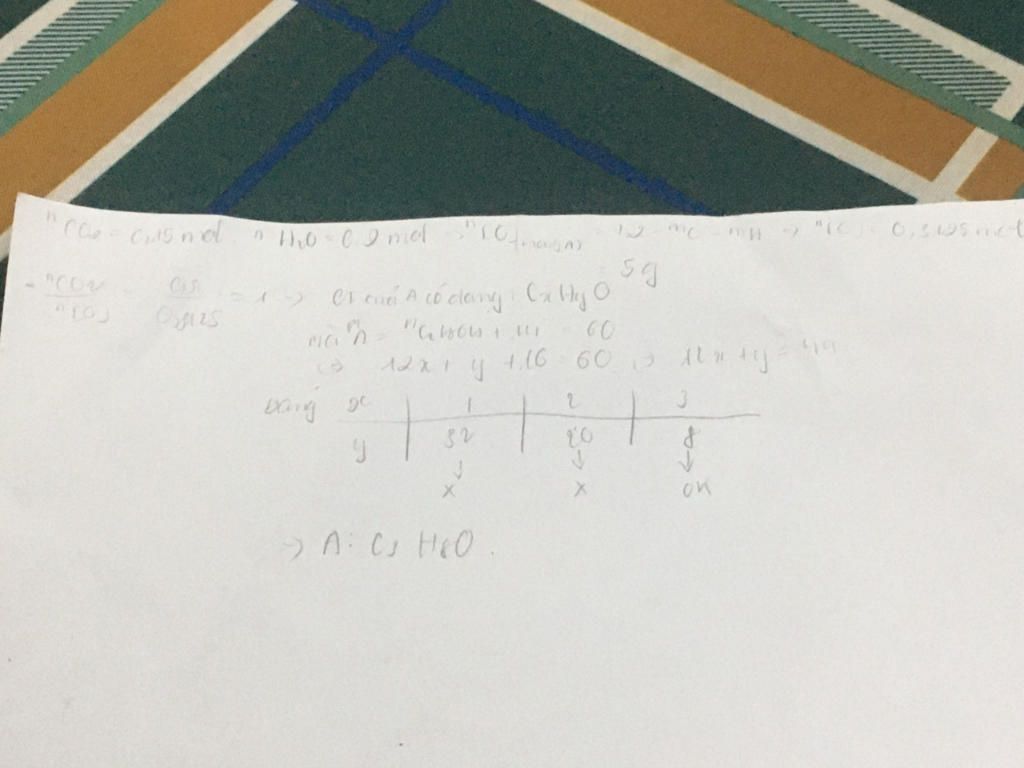 nCO2 = 0,15 mol nH2O = 0,2 mol → n[O] (trong A) = 7,2 - mC - mH → n[O] = 0,3125 mol
5g
nCO2 / n[O] = / 0,3125 = 1 → CT của A có dạng: CxHyO
mà MA = MCH3COOH = 60
⇒ 12x + y + 16 = 60 ⇒ 12x + y = 44
Bảng x | 1 | 2 | 3
y | 32 | 20 | 8
↓ ↓ ↓
x x OK
→ A: C3H8O.